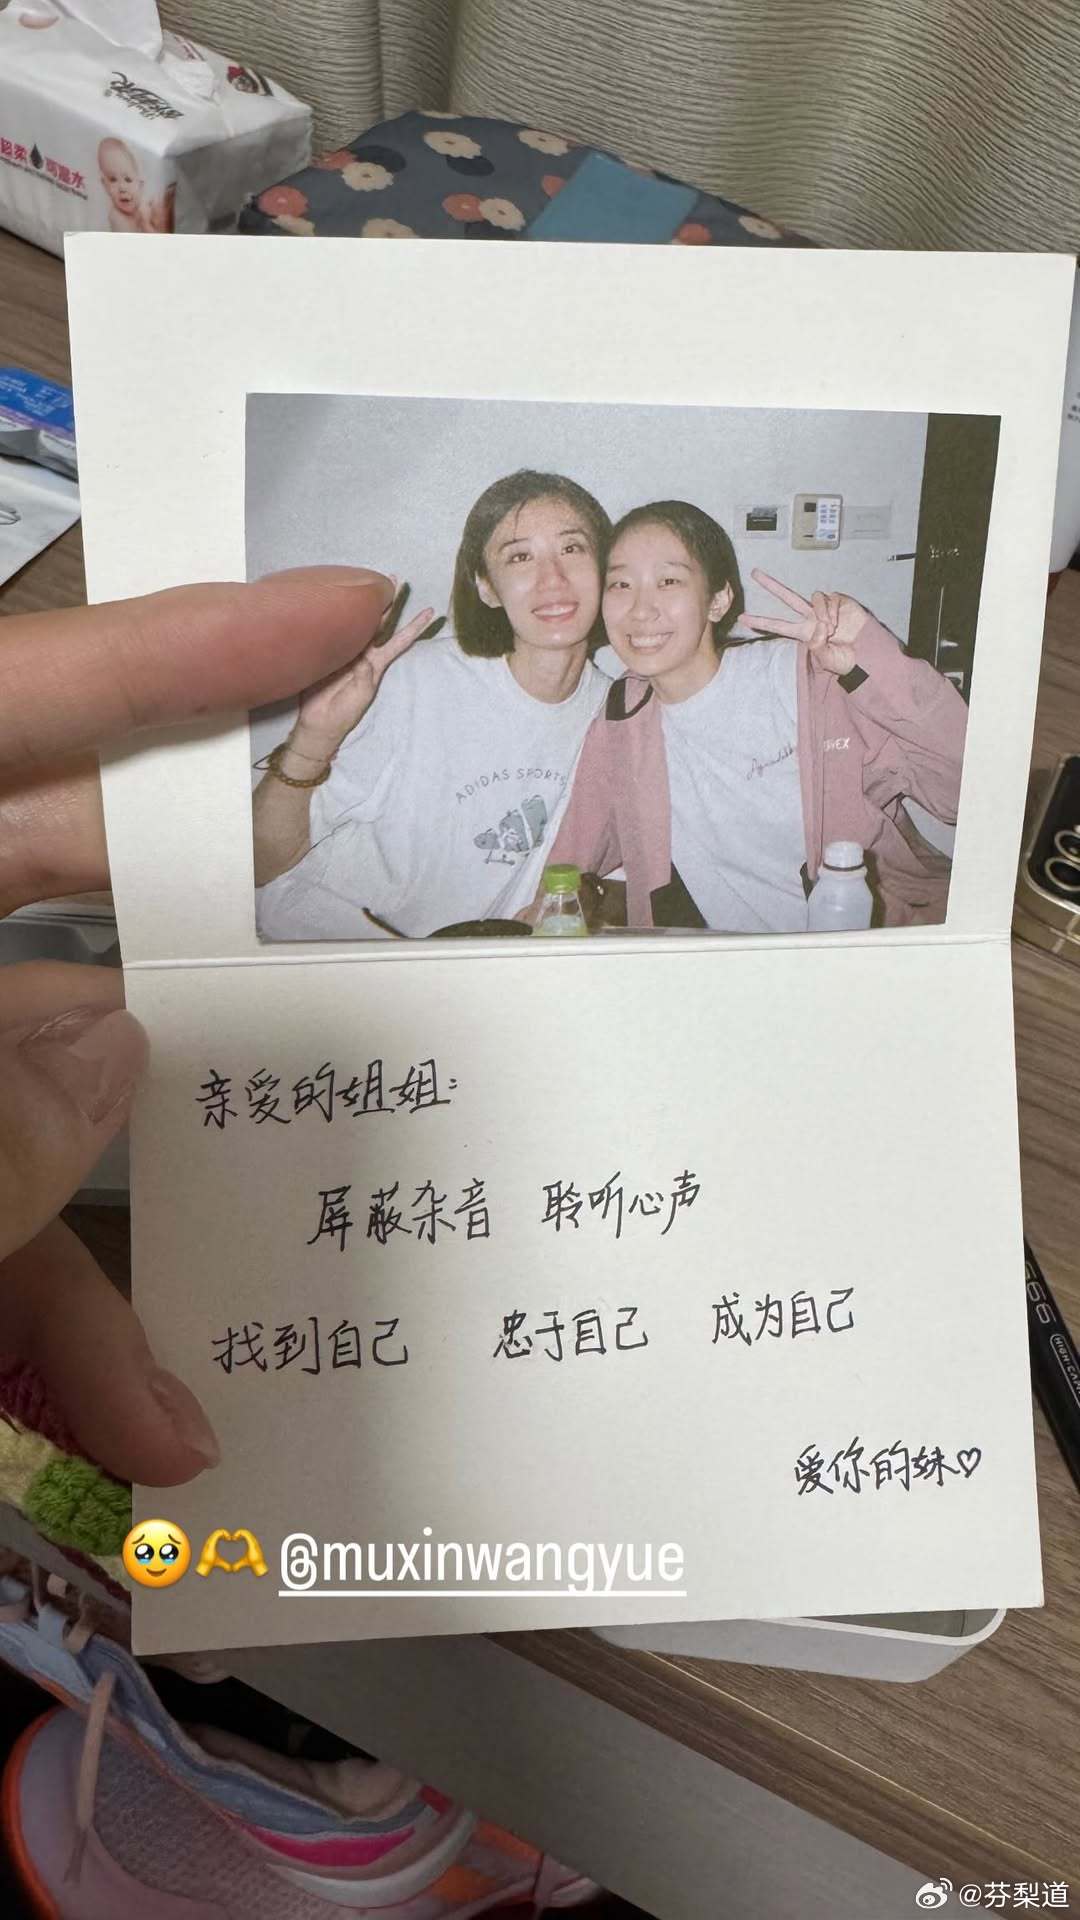 超柔 可湿水
ADIDAS SPORTS
亲爱的姐姐：
屏蔽杂音 聆听心声
找到自己 忠于自己 成为自己
爱你的妹♡
666
🥹🫶 @muxinwangyue
@芬梨道